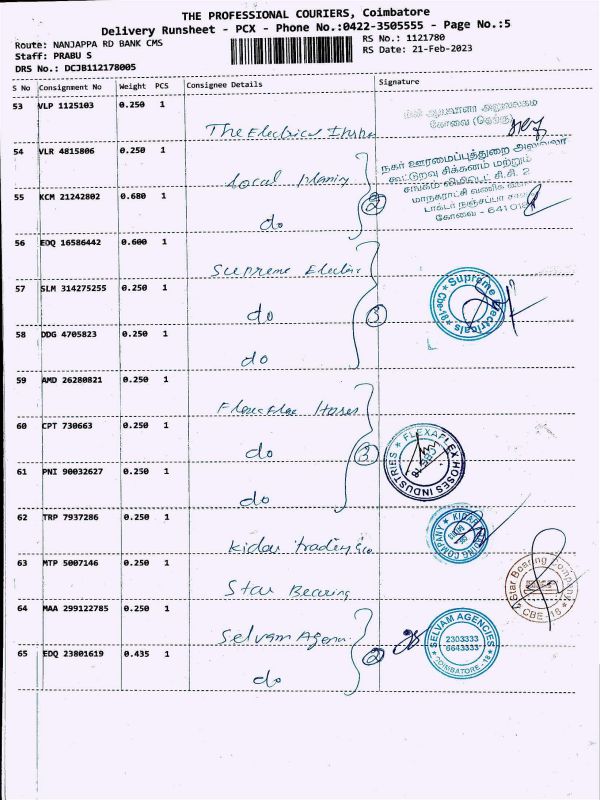 THE PROFESSIONAL COURIERS, Coimbatore
Delivery Runsheet - PCX - Phone No.:0422-3505555 - Page No.:5
Route: NANJAPPA RD BANK CMS
RS No.: 1121780
Staff: PRABU S
RS Date: 21-Feb-2023
DRS No.: DCJB112178005
S No Consignment No Weight PCS Consignee Details Signature
53 VLP 1125103 0.250 1
The Electrical
54 VLR 4815806 0.250 1
Local Planning
55 KCM 21242802 0.680 1
do
2
நகர் ஊரமைப்புத்துறை
கூட்டுறவு சிக்கனம் மற்றும்
கோவை - 641018
56 EDQ 16586442 0.600 1
Supreme Electric
57 SLM 314275255 0.250 1
do
3
Supreme Electricals
Cbe-18
58 DDG 4705823 0.250 1
do
59 AMD 26280821 0.250 1
Flexaflex Hoses
60 CPT 730663 0.250 1
do
3
FLEXAFLEX HOSES INDUSTRIES
CBE-18
61 PNI 90032627 0.250 1
do
62 TRP 7937286 0.250 1
Kidav trading co
63 MTP 5007146 0.250 1
Star Bearing
Star Bearing Company
CBE-18
64 MAA 299122785 0.250 1
Selvam Agen
65 EDQ 23801619 0.435 1
do
2
SELVAM AGENCIES
2303333
6643333
COIMBATORE-18